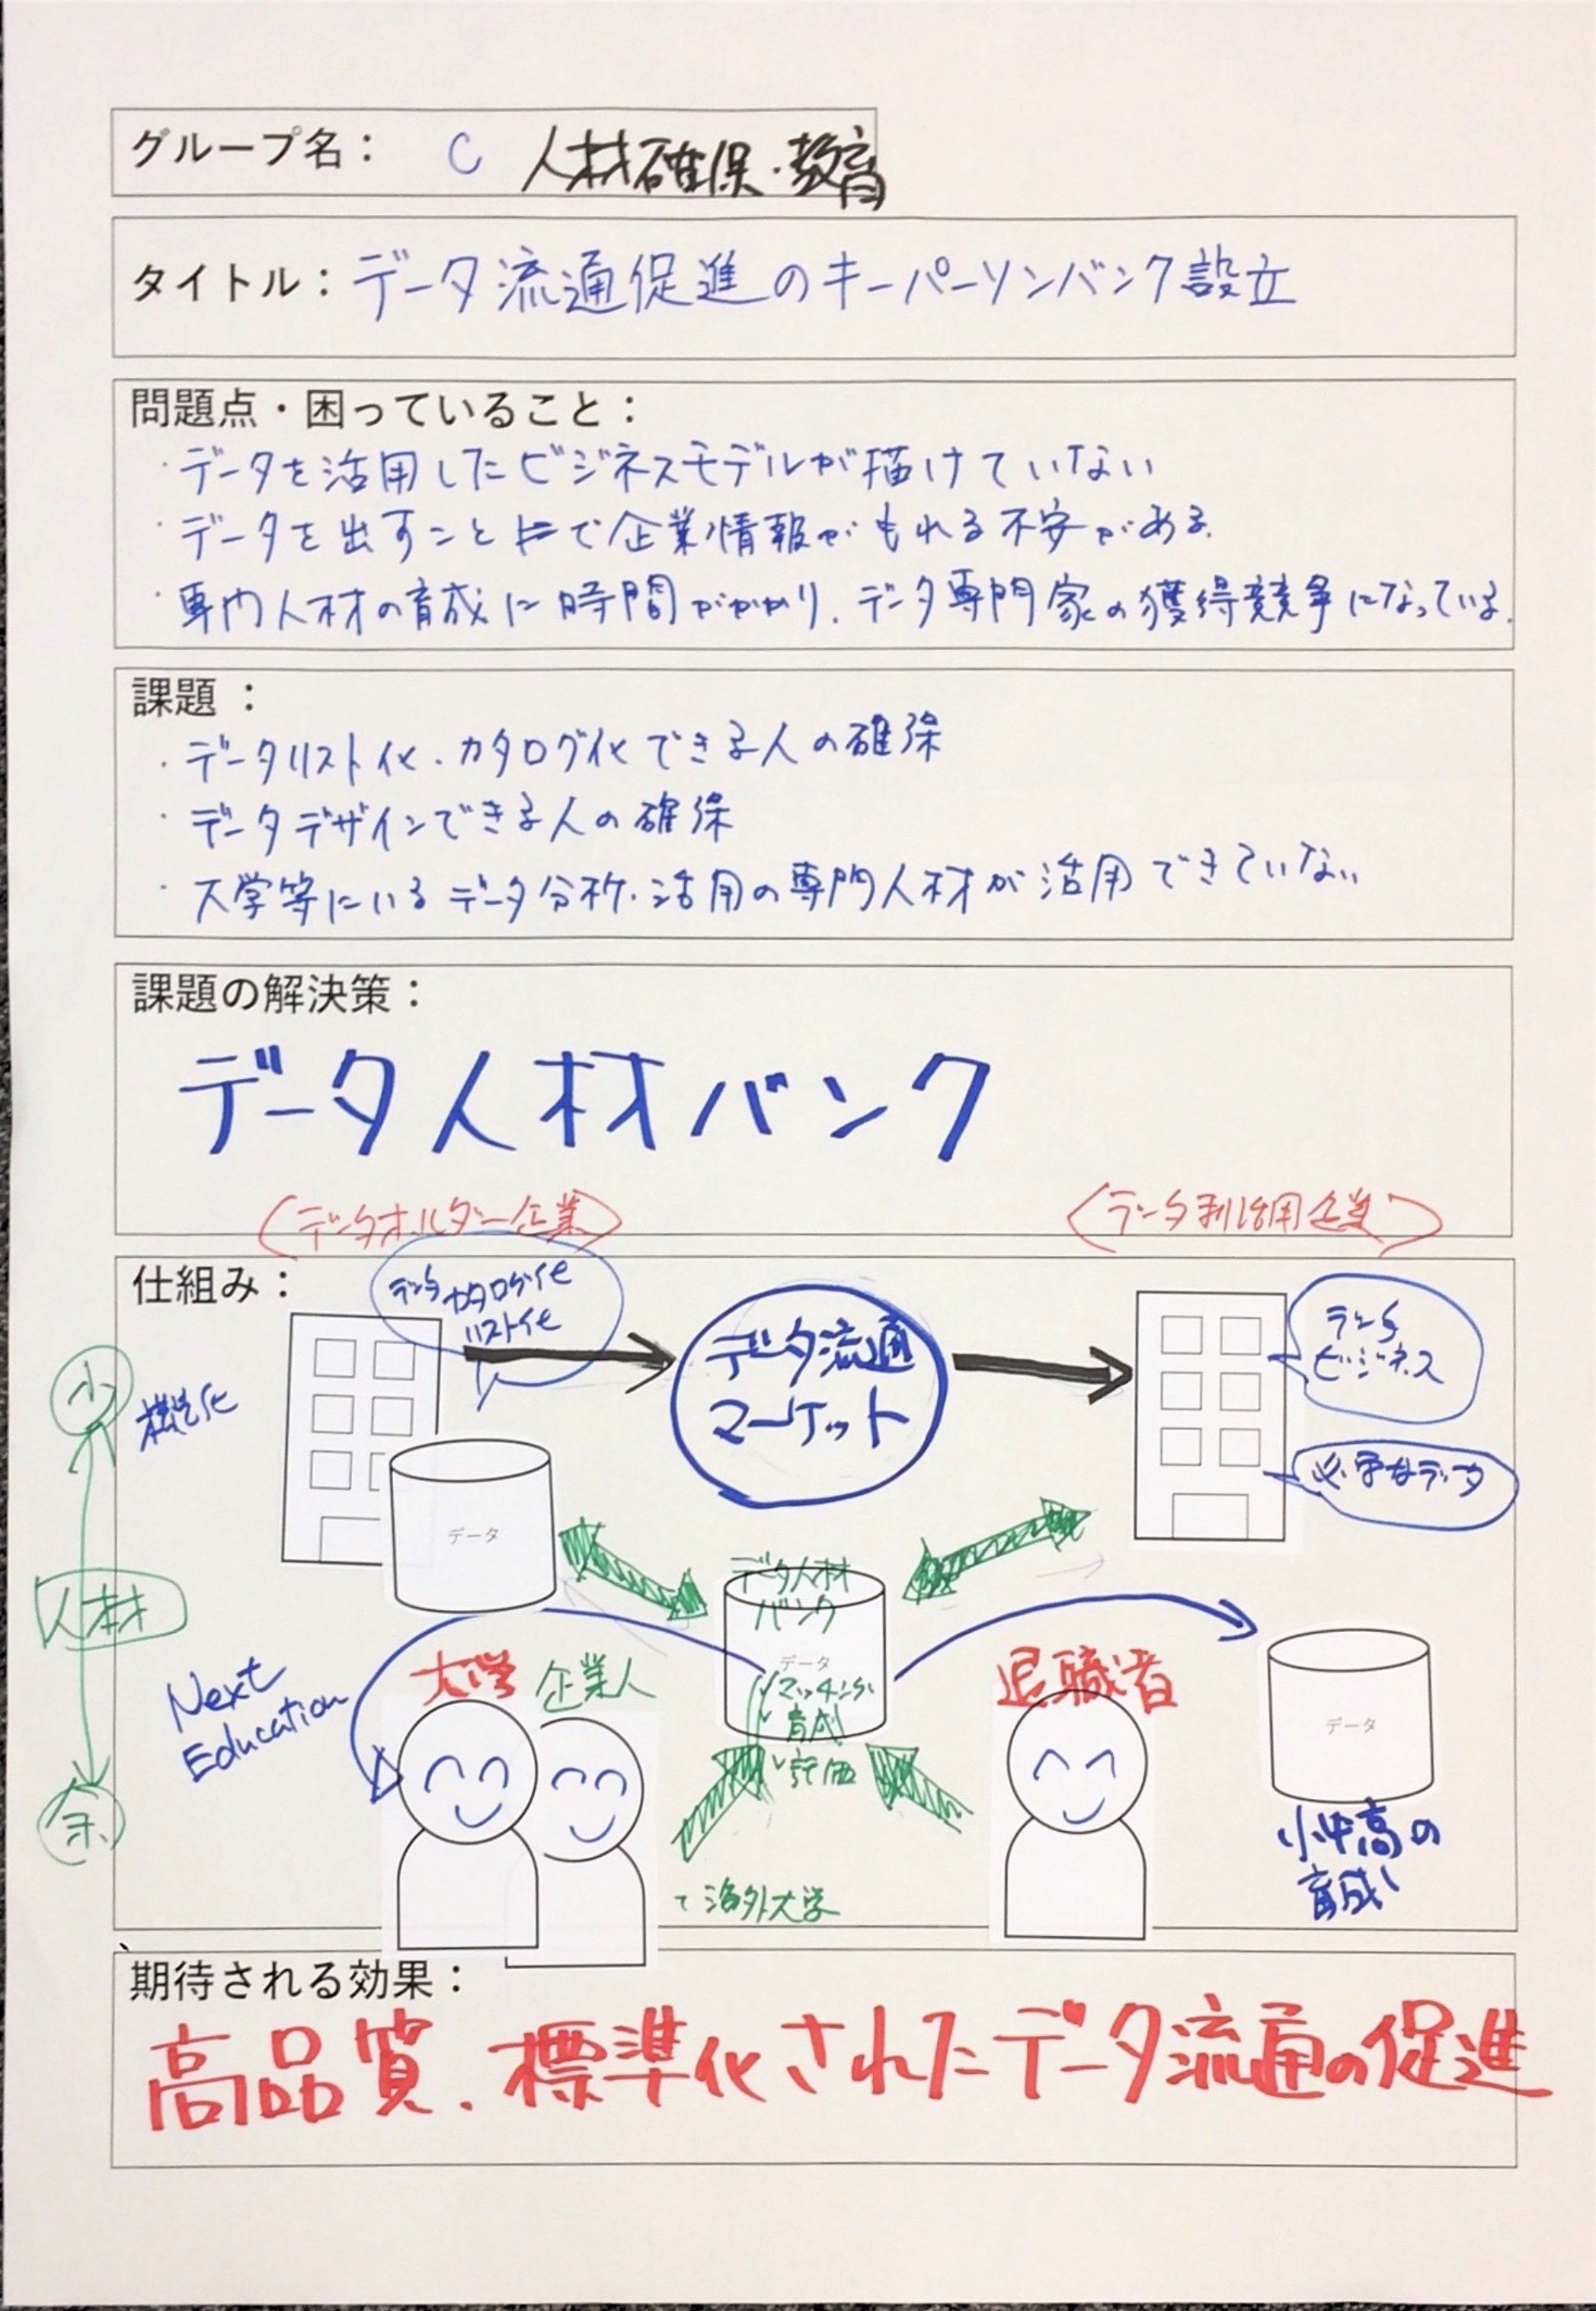 グループ名： C 人材確保・教育
タイトル：データ流通促進のキーパーソンバンク設立
問題点・困っていること：
・データを活用したビジネスモデルが描けていない
・データを出すことで企業情報がもれる不安がある.
・専門人材の育成に時間がかかり、データ専門家の獲得競争になっている.
課題 ：
・データリスト化・カタログ化できる人の確保
・データデザインできる人の確保
・大学等にいるデータ分析・活用の専門人材が活用できていない
課題の解決策：
データ人材バンク
(データホルダー企業)
(データ利活用企業)
仕組み：
データ カタログ化
リスト化
データ流通
マーケット
データ
ビジネス
必要なデータ
小
構造化
人材
余
データ
データ人材
バンク
データ
✓マッチング
✓育成
✓評価
Next
Education
大学 企業人
退職者
データ
小中高の
育成
海外大学
期待される効果：
高品質、標準化されたデータ流通の促進